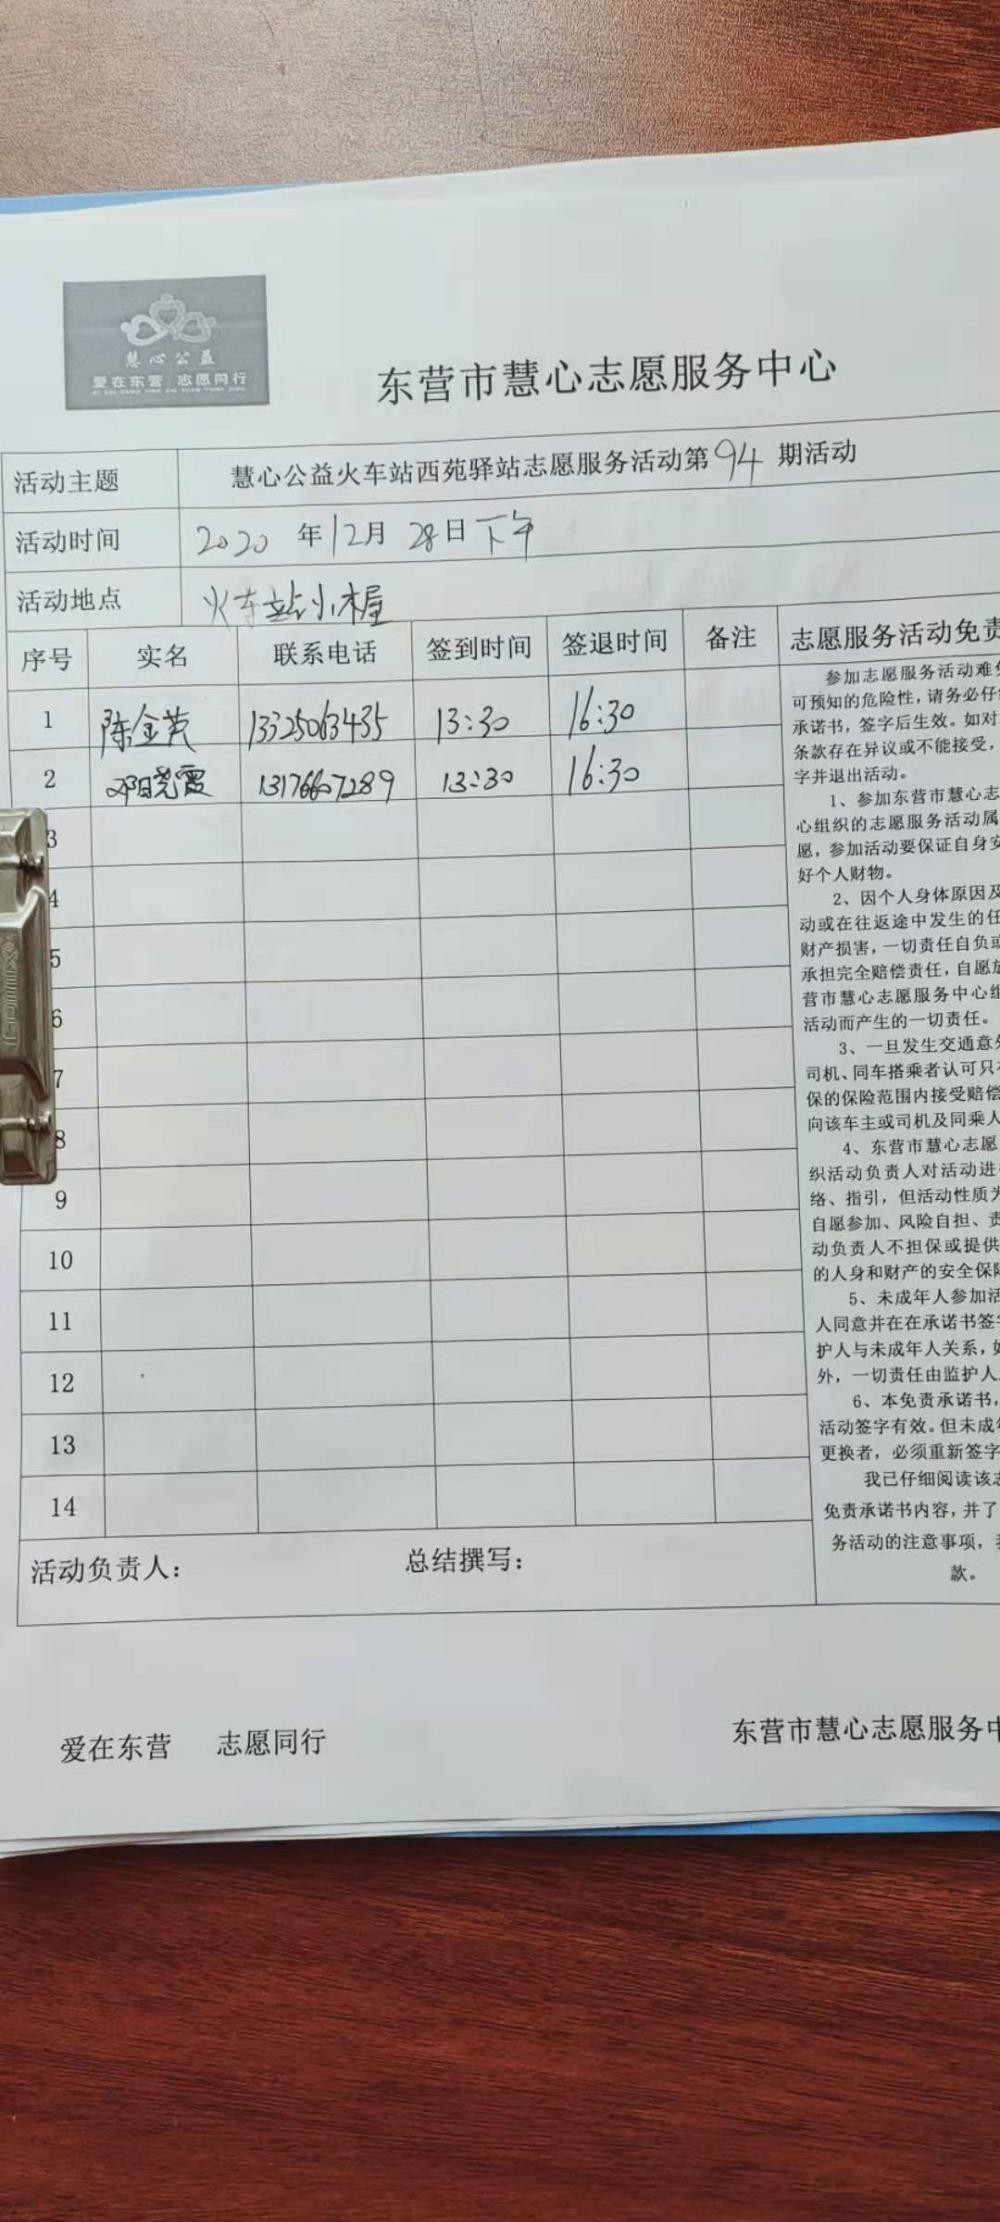 慧心公益
爱在东营 志愿同行
东营市慧心志愿服务中心
活动主题 慧心公益火车站西苑驿站志愿服务活动第94期活动
活动时间 2020年12月28日下午
活动地点 火车站小木屋
序号 实名 联系电话 签到时间 签退时间 备注 志愿服务活动免责
1 陈金英 13325063435 13:30 16:30
2 邓晓霞 13176607289 13:30 16:30
3
4
5
6
7
8
9
10
11
12
13
14
参加志愿服务活动难免
可预知的危险性，请务必仔细
承诺书，签字后生效。如对
条款存在异议或不能接受，
字并退出活动。
1、参加东营市慧心志
心组织的志愿服务活动属
愿，参加活动要保证自身安
好个人财物。
2、因个人身体原因及
动或在往返途中发生的任
财产损害，一切责任自负或
承担完全赔偿责任，自愿放
营市慧心志愿服务中心组
活动而产生的一切责任。
3、一旦发生交通意外
司机、同车搭乘者认可只在
保的保险范围内接受赔偿
向该车主或司机及同乘人
4、东营市慧心志愿
织活动负责人对活动进
络、指引，但活动性质为
自愿参加、风险自担、责
动负责人不担保或提供
的人身和财产的安全保障
5、未成年人参加活
人同意并在在承诺书签字
护人与未成年人关系，如
外，一切责任由监护人
6、本免责承诺书，
活动签字有效。但未成年
更换者，必须重新签字
我已仔细阅读该志
免责承诺书内容，并了
务活动的注意事项，我
款。
活动负责人： 总结撰写：
爱在东营 志愿同行 东营市慧心志愿服务中